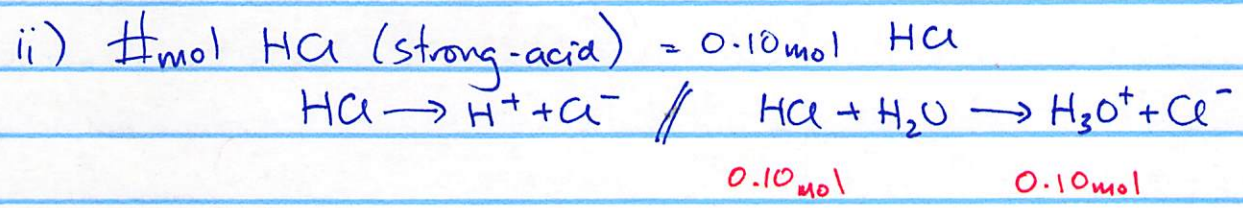 ii) #mol HCl (strong-acid) = 0.10mol HCl
HCl → H⁺ + Cl⁻ // HCl + H₂O → H₃O⁺ + Cl⁻
0.10mol 0.10mol